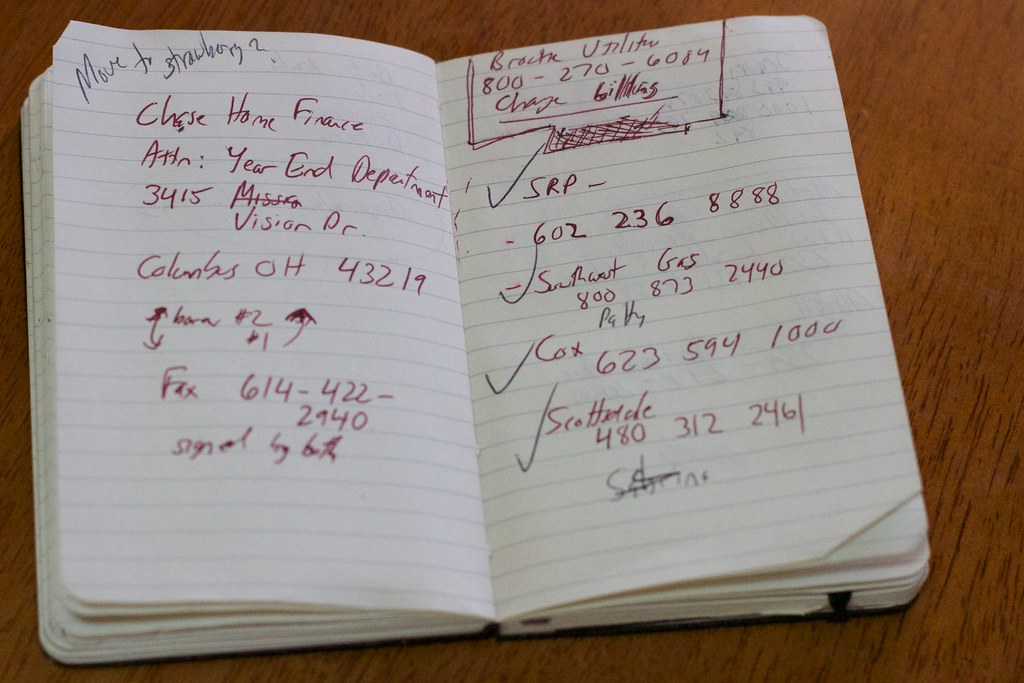 Move to strawberry?
Chase Home Finance
Attn: Year End Department
3415 Mission
Vision Dr.
Columbus OH 43219
#2
#1
Fax 614-422-
2940
signed by both
Utility
800-270-6084
billing
SRP -
- 602 236 8888
- Southwest Gas
800 873 2440
Patty
Cox 623 594 1000
Scottsdale
480 312 2461